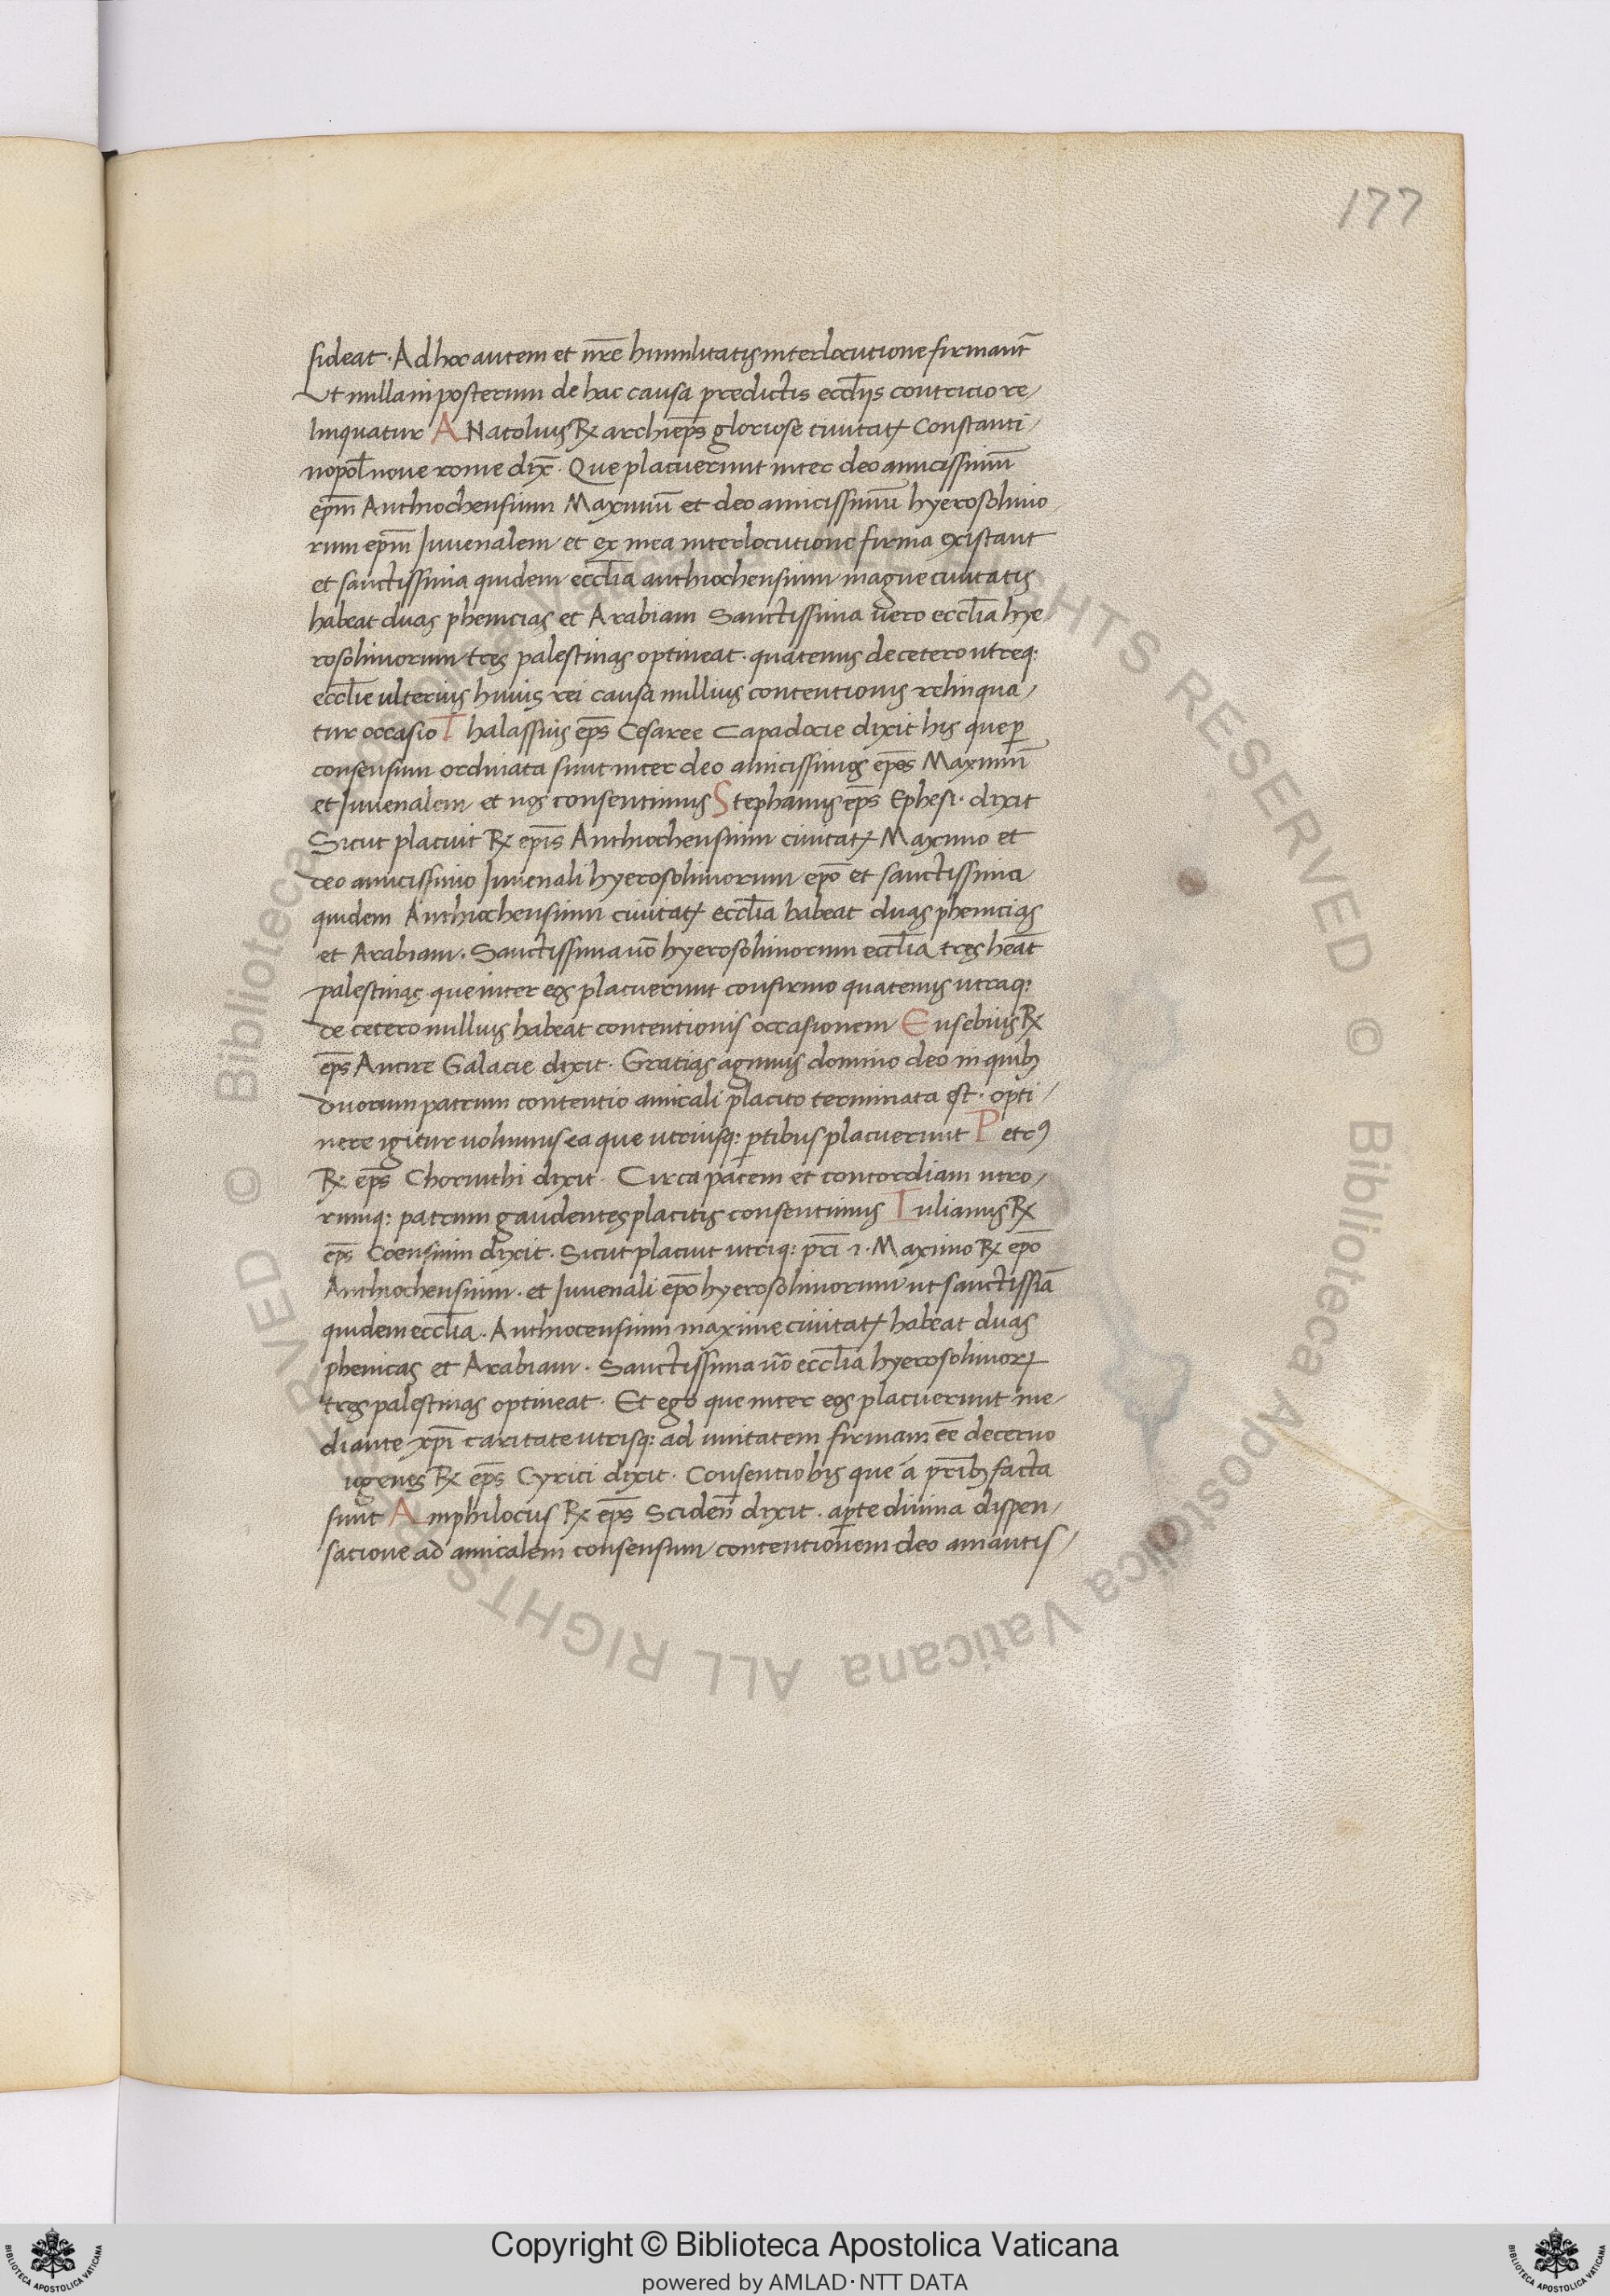 177
sideat · Ad hoc autem et nr̃e humilitatis interlocutione firmant̃
Ut nulla in posterum de hac causa predictis eccl̃iis contricio re/
linquatur ANatolius R᷒ archiep̃s gloriose ciuitat᷒ Constanti/
nopol̃ noue rome dix̃ · Que placuerunt inter deo amicissimũ
ep̃m Anthiochensium Maximũ et deo amicissimũ hyerosolimo
rum ep̃m Juuenalem et ex mea interlocutione firma existant
et sanctissima quidem eccl̃ia anthiochensium magne ciuitatis
habeat duas phenicias et Arabiam Sanctissima uero eccl̃ia hye
rosolimorum tres palestinas optineat · quatenus de cetero utreq:
eccl̃ie ulterius huius rei causa nullius contentionis relinqua/
tur occasio Thalassius ep̃s Cesaree Capadocie dixit his que p̱
consensum ordinata sunt inter deo amicissimos ep̃os Maximũ
et Juuenalem et nos consentimus Stephanus ep̃s Ephesi · dixit
Sicut placuit R᷒ ep̃is Anthiochensium ciuitat᷒ Maximo et
deo amicissimo Juuenali hyerosolimorum ep̃o et sanctissima
quidem Anthiochensium ciuitat᷒ eccl̃ia habeat duas phenicias
et Arabiam · Sanctissima uõ hyerosolimorum eccl̃ia tres heãt
palestinas que inter eos placuerunt confirmo quatenus utraq:
de cetero nullius habeat contentionis occasionem Eusebius R᷒
ep̃s Ancire Galacie dixit · Gratias agimus domino deo in quib᷒
duorum patrum contentio amicali placito terminata est · opti/
nere igitur uolumus ea que utriusq: p̱tibus placuerunt Petr᷒
R᷒ ep̃s Chorinthi dixit · Circa pacem et concordiam utro/
rumq: patrum gaudentes placitis consentimus Iulianus R᷒
ep̃s Coensium dixit · Sicut placuit utriq: pr̃i ı · Maximo R᷒ ep̃o
Anthiochensium · et Juuenali ep̃o hyerosolimorum ut sanctissiã
quidem eccl̃ia · Anthiocensium maxime ciuitat᷒ habeat duas
phenicas et Arabiam · Sanctissima uõ eccl̃ia hyerosolimor᷒
tres palestinas optineat · Et ego que inter eos placuerunt me/
diante xp̃i caritate utrisq: ad unitatem firmam eẽ decerno
iogenes R᷒ ep̃s Cyzici dixit · Consentio his que á pr̃ib᷒ facta
sunt Amphilocus R᷒ ep̃s Sciden̄ dixit · ap̱te diuina dispen/
satione ad amicalem consensum contentionem deo amantis/
© Biblioteca Apostolica Vaticana ALL RIGHTS RESERVED © Biblioteca Apostolica Vaticana ALL RIGHTS RESERVED
Copyright © Biblioteca Apostolica Vaticana
powered by AMLAD·NTT DATA